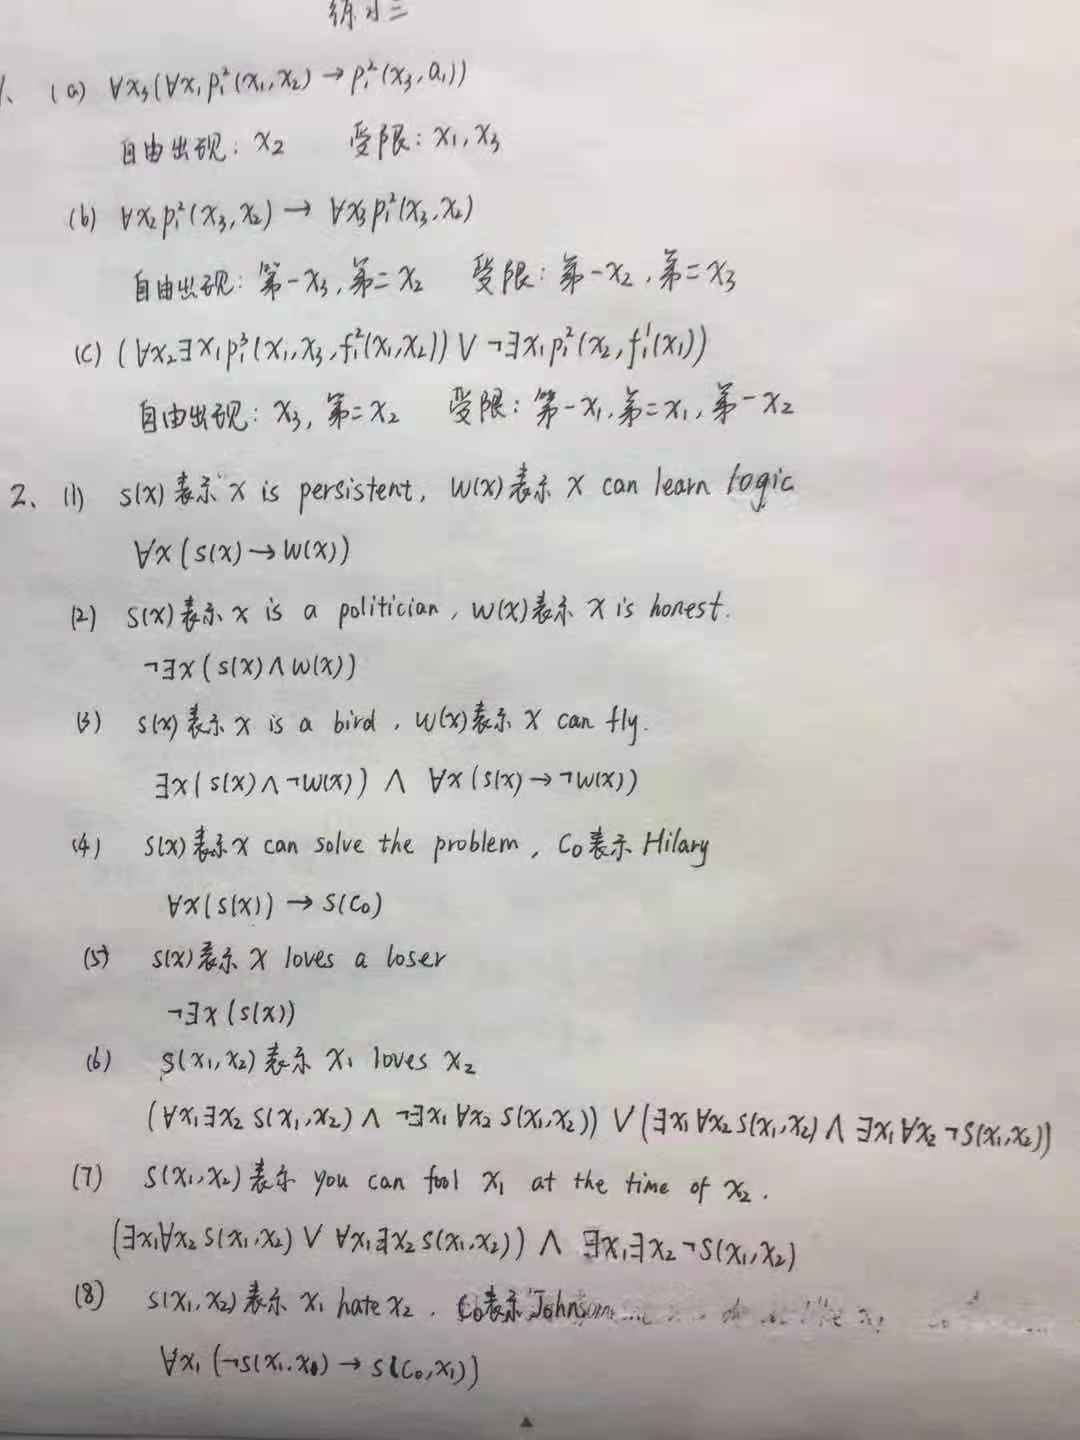 练习三
1、(a) ∀x₃(∀x₁p₁²(x₁,x₂)→p₁²(x₃,a₁))
自由出现: x₂ 受限: x₁,x₃
(b) ∀x₂p₁²(x₃,x₂)→ ∀x₃p₁²(x₃,x₂)
自由出现: 第一x₃,第二x₂ 受限: 第一x₂,第二x₃
(c) (∀x₂∃x₁p₁³(x₁,x₃,f₁²(x₁,x₂))∨¬∃x₁p₁²(x₂,f₁¹(x₁))
自由出现: x₃, 第二x₂ 受限: 第一x₁,第二x₁,第一x₂
2、(1) S(x)表示x is persistent, W(x)表示 x can learn logic
∀x(S(x)→W(x))
(2) S(x)表示x is a politician, W(x)表示 x is honest.
¬∃x(S(x)∧W(x))
(3) S(x)表示x is a bird, W(x)表示 x can fly.
∃x(S(x)∧¬W(x)) ∧ ∀x(S(x)→¬W(x))
(4) S(x)表示x can solve the problem, C₀表示Hilary
∀x(S(x))→S(C₀)
(5) S(x)表示 x loves a loser
¬∃x(S(x))
(6) S(x₁,x₂)表示 x₁ loves x₂
(∀x₁∃x₂ S(x₁,x₂)∧ ¬∃x₁∀x₂ S(x₁,x₂))∨(∃x₁∀x₂S(x₁,x₂)∧∃x₁∀x₂¬S(x₁,x₂))
(7) S(x₁,x₂)表示 you can fool x₁ at the time of x₂.
(∃x₁∀x₂S(x₁,x₂)∨∀x₁∃x₂S(x₁,x₂))∧ ∃x₁∃x₂¬S(x₁,x₂)
(8) S(x₁,x₂)表示 x₁ hate x₂. C₀表示Johnson
∀x₁(¬S(x₁,x₁)→S(C₀,x₁))